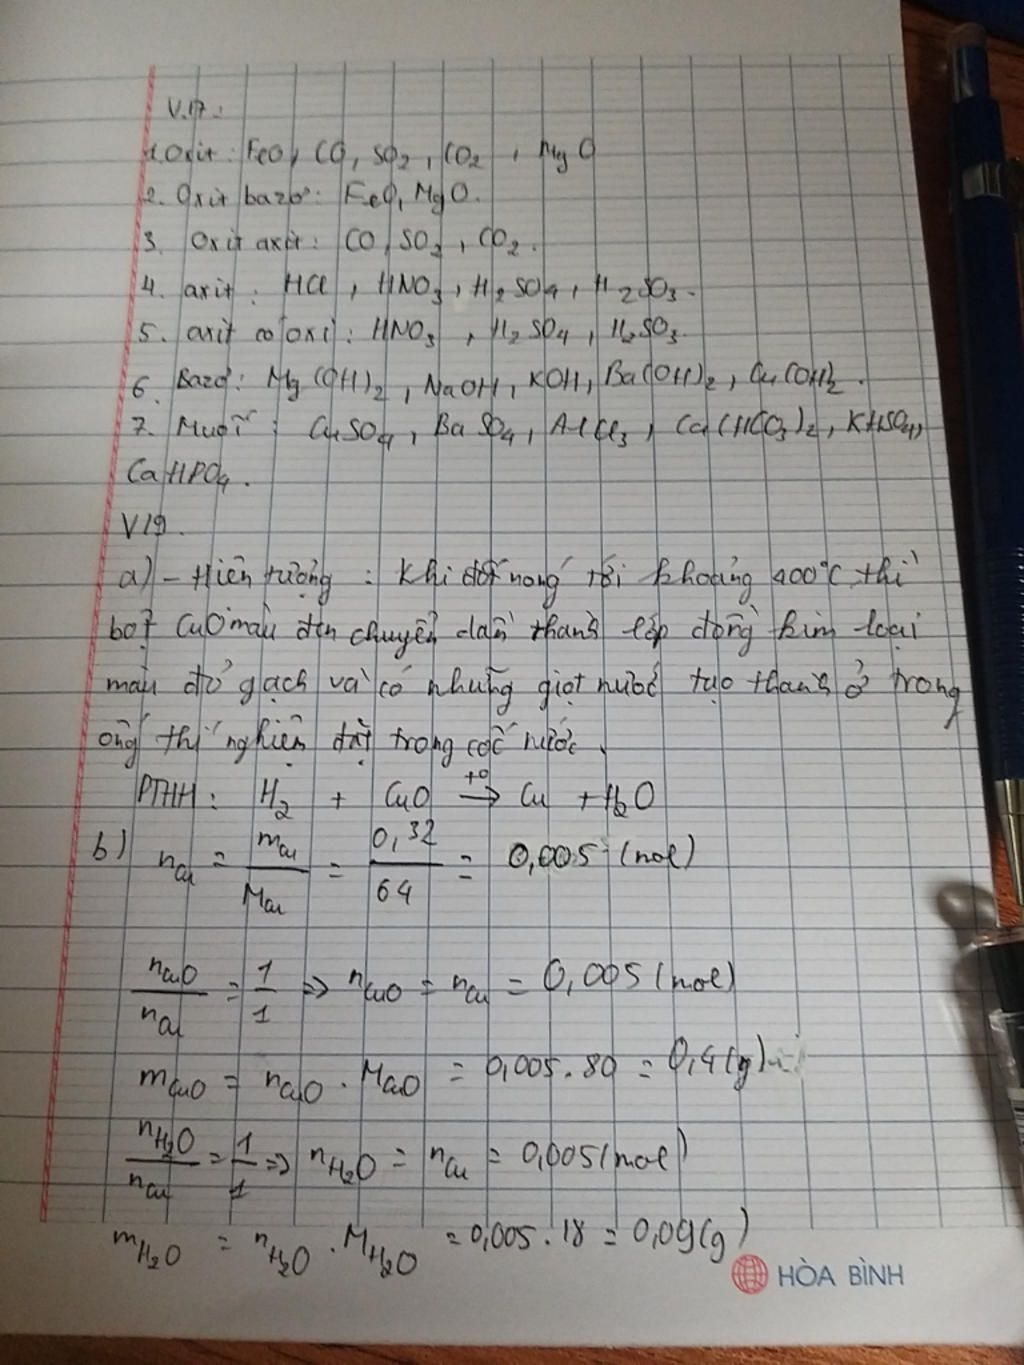 V.17:
1. Oxit: FeO, CO, SO2, CO2, MgO
2. Oxit bazơ: FeO, MgO.
3. Oxit axit: CO, SO3, CO2.
4. axit: HCl, HNO3, H2SO4, H2SO3.
5. axit có oxi: HNO3, H2SO4, H2SO3.
6. Bazơ: Mg(OH)2, NaOH, KOH, Ba(OH)2, Cu(OH)2.
7. Muối: CuSO4, BaSO4, AlCl3, Ca(HCO3)2, KHSO4,
CaHPO4.
V19.
a) - Hiện tượng: Khi đốt nóng tới khoảng 400°C thì
bột CuO màu đen chuyển dần thành lớp đồng kim loại
màu đỏ gạch và có những giọt nước tạo thành ở trong
ống thí nghiệm đặt trong cốc nước.
PTHH: H2 + CuO →(t°) Cu + H2O
b) nCu = mCu/MCu = 0,32/64 = 0,005 (mol)
nCuO/nCu = 1/1 => nCuO = nCu = 0,005 (mol)
mCuO = nCuO . MCuO = 0,005.80 = 0,4 (g)
nH2O/nCu = 1/1 => nH2O = nCu = 0,005 (mol)
mH2O = nH2O . MH2O = 0,005.18 = 0,09 (g)
HÒA BÌNH